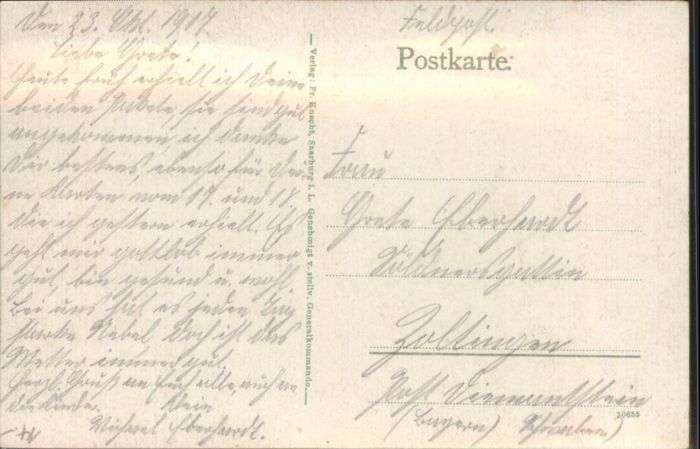 Den 23. Okt. 1917.
Liebe Grete!
Heute früh erhielt ich Deine
beiden Pakete sie sind gut
angekommen ich danke
Dir bestens ebenso für Dei-
ne Karten vom 17. und 18.
die ich gestern erhielt. Es
geht mir gottlob immer
gut, bin gesund u. wohl
bei uns hat es jeden Tag
starke Nebel doch ist das
Wetter immer gut.
Herzl. Gruß an Euch alle, auch an
die Kinder. Dein
Michael Eberhardt.
Verlag: Fr. Knecht, Saarburg i. L. Genehmigt v. stellv. Generalkommando.
Feldpost.
Postkarte.
Frau
Grete Eberhardt
Söldnersgattin
Zoltingen
Post Diemantstein
(Bayern) Schwaben)